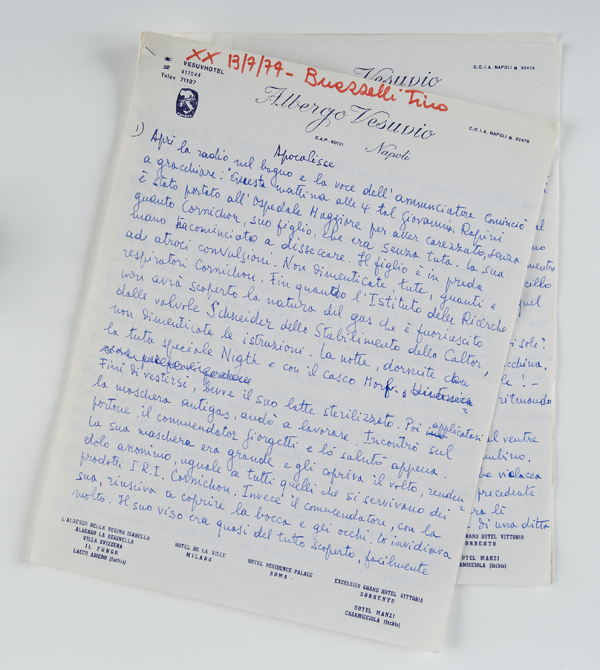 XX 13/7/79 - Buazzelli Tino
VESUVHOTEL
417044
Telex 71127
Vesuvio
C.C.I.A. NAPOLI N. 92476
Albergo Vesuvio
C.C.I.A. NAPOLI N 92476
C.A.P. 80121
Napoli
1) Apocalisse
Aprì la radio nel bagno e la voce dell'annunciatore cominciò
a gracchiare: "Questa mattina alle 4 tal Giovanni Rapini
è stato portato all'Ospedale Maggiore per aver carezzato, senza
guanto Cornichon, suo figlio, che era senza tuta. La sua
mano ha cominciato a disseccare. Il figlio è in preda
ad atroci convulsioni. Non dimenticate tute, guanti e
respiratori Cornichon. Fin quando l'Istituto delle Ricerche
non avrà scoperto la natura del gas che è fuoriuscito
dalle valvole Schneider dello Stabilimento dello Caltor,
non dimenticate le istruzioni. La notte, dormite con
la tuta speciale Nigth e con il casco Morf.
Finì di vestirsi, bevve il suo latte sterilizzato. Poi applicatasi
la maschera antigas, andò a lavorare. Incontrò sul
portone il commendator Giorgetti e lo salutò appena.
La sua maschera era grande e gli copriva il volto, renden=
dolo anonimo, uguale a tutti quelli che si servivano dei
prodotti I.R.I. Cornichon. Invece il commendatore, con la
sua, riusciva a coprire la bocca e gli occhi. Lo invidiava
molto. Il suo viso era quasi del tutto scoperto, facilmente
L'ALBERGO DELLA REGINA ISABELLA
ALBERGO LA REGINELLA
VILLA SVIZZERA
IL FUNGO
LACCO AMENO (Ischia)
HOTEL DE LA VILLE
MILANO
HOTEL RESIDENCE PALACE
ROMA
EXCELSIOR GRAND HOTEL VITTORIA
SORRENTO
HOTEL MANZI
CASAMICCIOLA (Ischia)
al
mentre
quel
soli?
le! -
il ventre
violacea
precedente
di una ditta
GRAND HOTEL VITTORIA
SORRENTO
HOTEL MANZI
CASAMICCIOLA (Ischia)